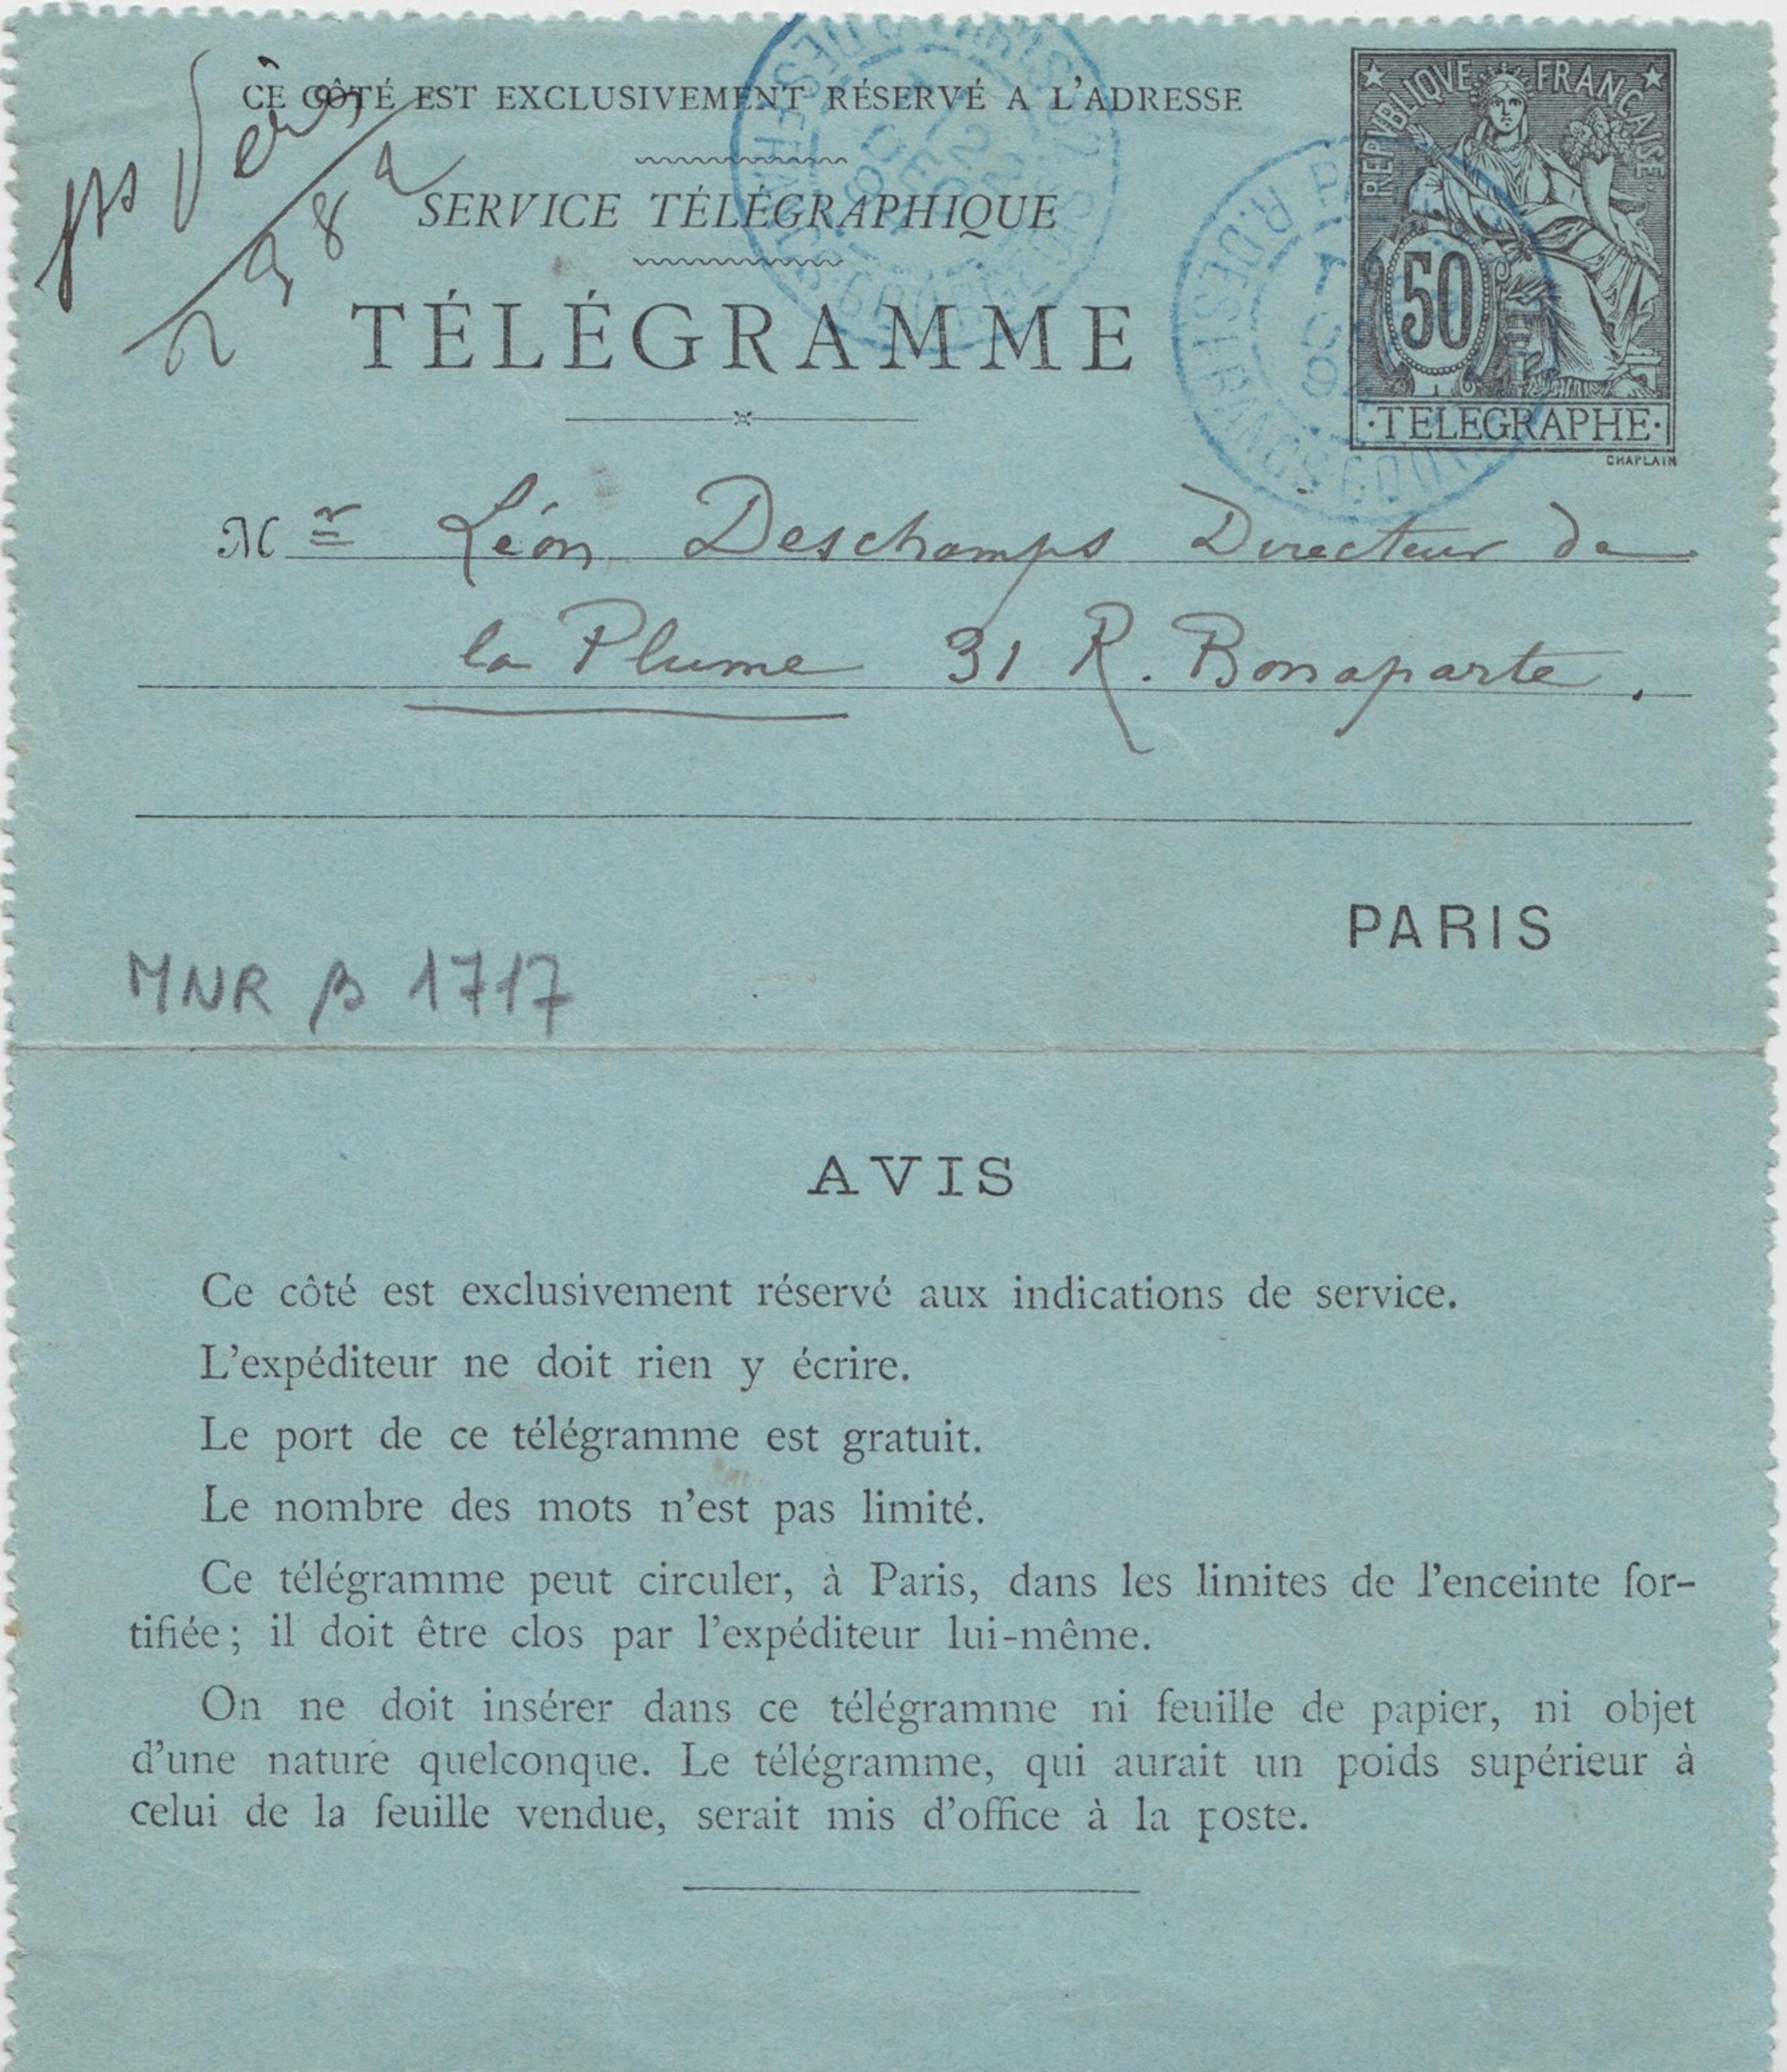 CE CÔTÉ EST EXCLUSIVEMENT RÉSERVÉ A L'ADRESSE
SERVICE TÉLÉGRAPHIQUE
TÉLÉGRAMME
REPVBLIQVE FRANÇAISE
50
·TELEGRAPHE·
CHAPLAIN
Mr Léon Deschamps Directeur de
la Plume 31 R. Bonaparte.
PARIS
MNR β 1717
AVIS
Ce côté est exclusivement réservé aux indications de service.
L'expéditeur ne doit rien y écrire.
Le port de ce télégramme est gratuit.
Le nombre des mots n'est pas limité.
Ce télégramme peut circuler, à Paris, dans les limites de l'enceinte for-
tifiée; il doit être clos par l'expéditeur lui-même.
On ne doit insérer dans ce télégramme ni feuille de papier, ni objet
d'une nature quelconque. Le télégramme, qui aurait un poids supérieur à
celui de la feuille vendue, serait mis d'office à la poste.